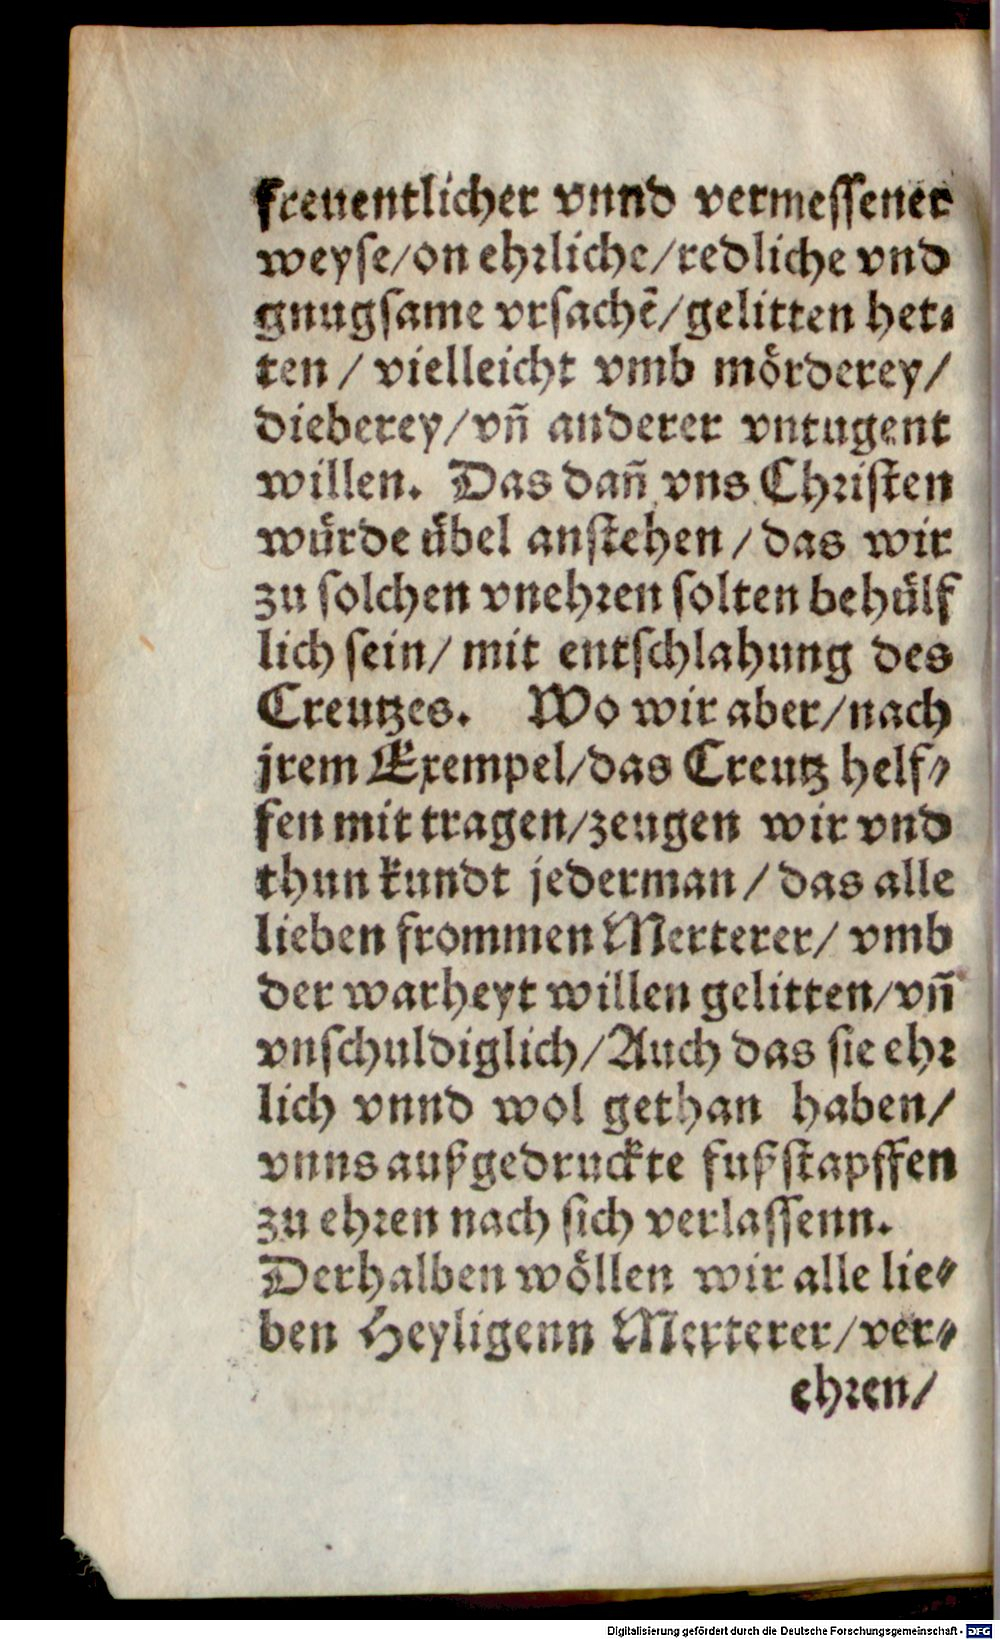 freuentlicher vnnd vermessener
weyse/on ehrliche/redliche vnd
gnugsame vrsachē/gelitten het⸗
ten / vielleicht vmb mörderey/
dieberey/vn̄ anderer vntugent
willen. Das dan̄ vns Christen
würde übel anstehen / das wir
zu solchen vnehren solten behülf
lich sein/ mit entschlahung des
Creutzes. Wo wir aber/nach
jrem Exempel/das Creutz helf⸗
fen mit tragen/zeugen wir vnd
thun kundt jederman / das alle
lieben frommen Merterer/ vmb
der warheyt willen gelitten/vn̄
vnschuldiglich/Auch das sie ehr
lich vnnd wol gethan haben/
vnns außgedruckte fußstapffen
zu ehren nach sich verlassenn.
Derhalben wöllen wir alle lie⸗
ben Heyligenn Merterer/ver⸗
ehren/
Digitalisierung gefördert durch die Deutsche Forschungsgemeinschaft - DFG